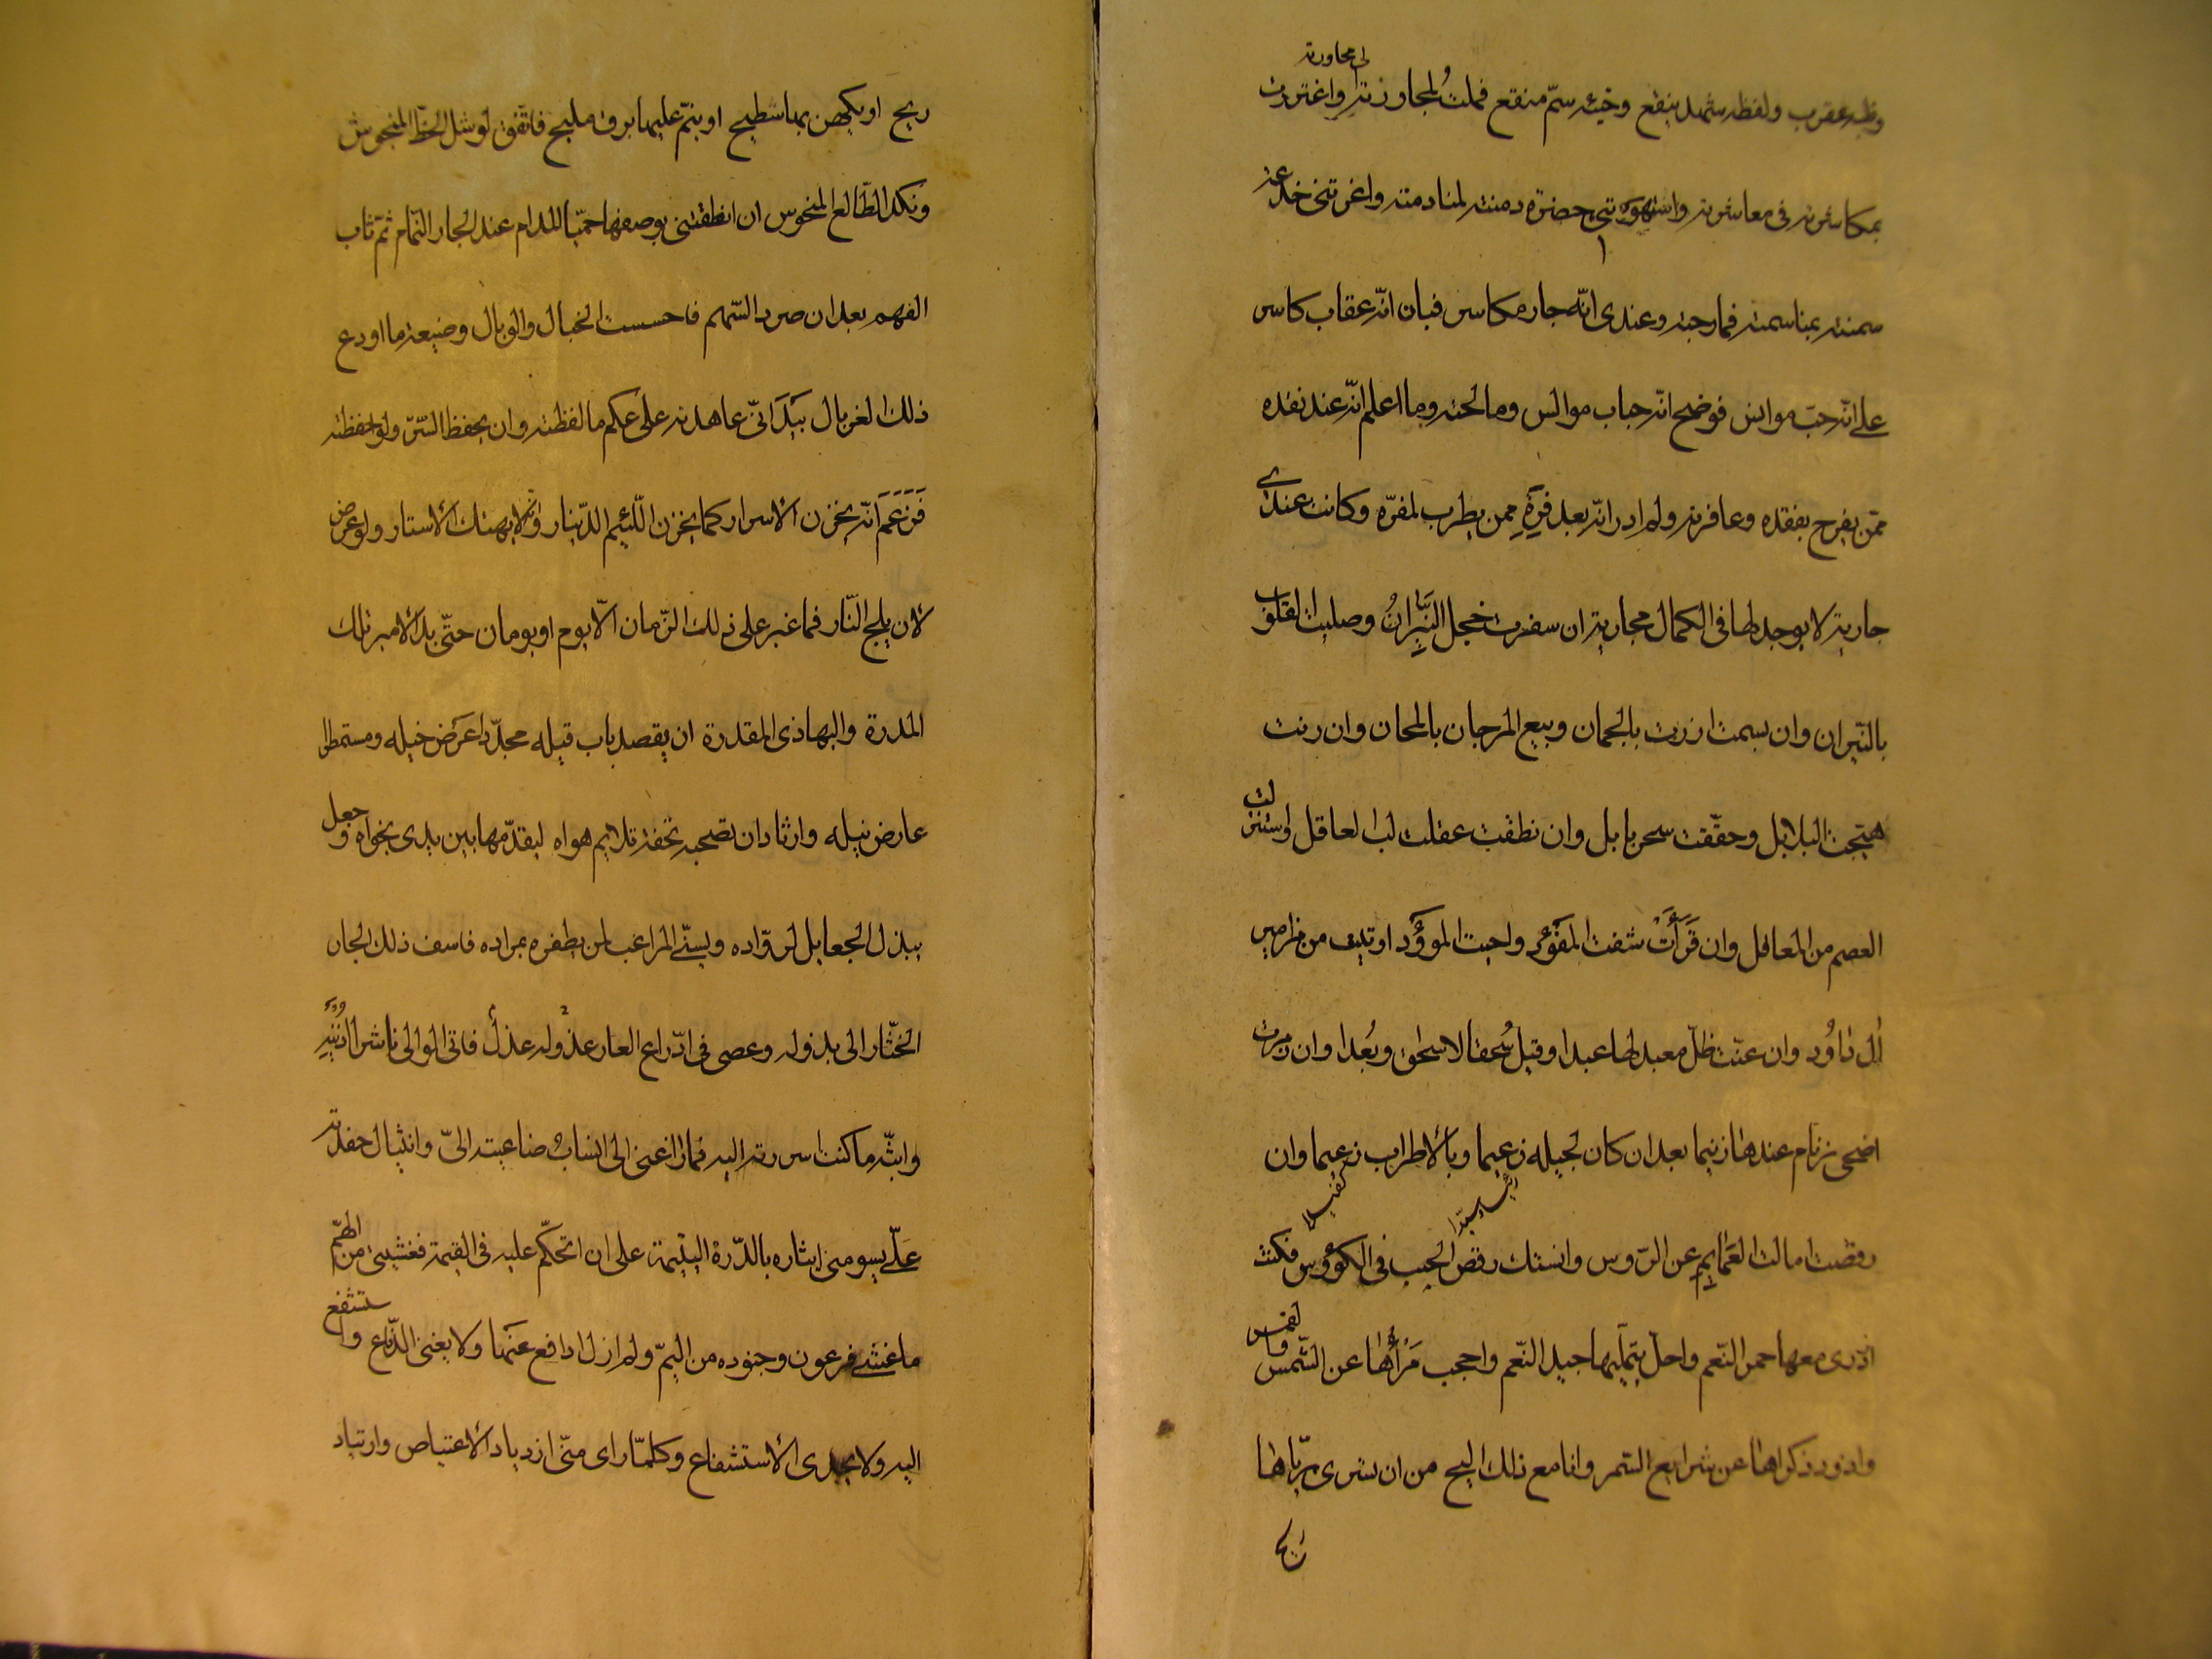 الى محاورته
وقلبه عقرب ولفظه شهد ينقع وخبئه سمّ منقع فملت لمجاورته واغتررت
بمكاشرته فى معاشرته واستهوتنى حضرة دمنته لمنادمته واغرتنى خدعة
سمته بمناسمته فمازجته وعندى انّه جار مكاسر فبان انّه عقاب كاسر
على انّه حبّ موانس فوضح انّه حباب موالس ومالحته وما اعلم انّه عند نقده
ممّن يفرح بفقده وعاقرته ولم ادر انّه بعد فرّه ممن يطرب لمفرّه وكانت عندى
جارية لا يوجد لها فى الكمال مجارية ان سفرت خجل النيّران وصليت القلوب
بالنّيران وان بسمت ازرت بالجمان وبيع المرجان بالمجان وان رنت
هيّجت البلابل وحقّقت سحر بابل وان نطقت عقلت لب العاقل واستنزلت
العصم من المعاقل وان قرأت شفت المفؤد واحيت الموؤد او تليت من مزامير
ال داؤد وان غنّت ظلّ معبد لها عبدا وقيل سحقا لاسحق وبعدا وان زمرت
اضحى زنام عندها زنيما بعد ان كان لجيله زعيما وبالاطراب زعيما وان
رئيسا وسيّدا
كفيلا
رقصت امالت العمايم عن الرّوس وانستك رقص الحبب فى الكؤوس فكنت
ازدرى معها حمر النّعم واحلّى بتملّيها جيد النّعم واحجب مرآها عن الشّمس والقمر
واذود ذكراها عن شرايع السّمر وانا مع ذلك اليح من ان تسرى بريّاها
ريح
ريح او يكهن بها سطيح او ينمّ عليها برق مليح فاتّفق لوشل الحظّ المنحوس
ونكد الطّالع المنحوس ان انطقتنى بوصفها حميّا المدام عند الجار النّمام ثمّ ثاب
الفهم بعد ان صرد السّهم فاحسست الخبال والوبال وضيعة ما اودع
ذلك الغربال بيد انّى عاهدته على عكم ما لفظته وان يحفظ السّرّ ولو احفظته
فزعم انّه يخزن الاسرار كما يخزن اللّئيم الدّينار وانّه لا يهتك الاستار ولو عرض
لان يلج النّار فما غبر على ذلك الزّمان الّا يوم او يومان حتّى بدا لامير تلك
المدرة واليها ذى المقدرة ان يقصد باب قيله مجدّدا عرض خيله ومستمطرا
عارض نيله وارتاد ان تصحبه تحفة تلايم هواه ليقدّمها بين يدى نجواه وجعل
يبذل الجعايل لروّاده ويسنّى المراغب لمن يظفره بمراده فاسف ذلك الجار
الختّار الى بذوله وعصى فى ادّراع العار عذل عذوله فاتى الوالى ناشرا اذنيه
وابثّه ما كنت اسررته اليه فما راعنى الا انسياب ضاعيته الىّ وانثيال حفدته
علىّ يسومنى ايثاره بالدّرة اليتيمة على ان اتحكّم عليه فى القيمة فغشينى من الهمّ
ما غشى فرعون وجنوده من اليمّ ولم ازل ادافع عنها ولا يغنى الدّفاع واستشفع
اليه ولا يجدى الاستشفاع وكلمّا راى منّى ازدياد الاعتياص وارتياد